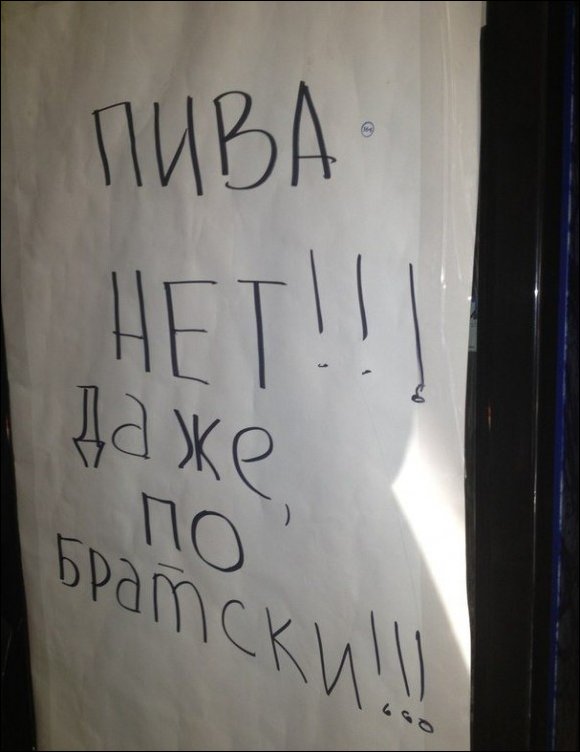 ПИВА
НЕТ!!!
Даже,
по
братски!!!